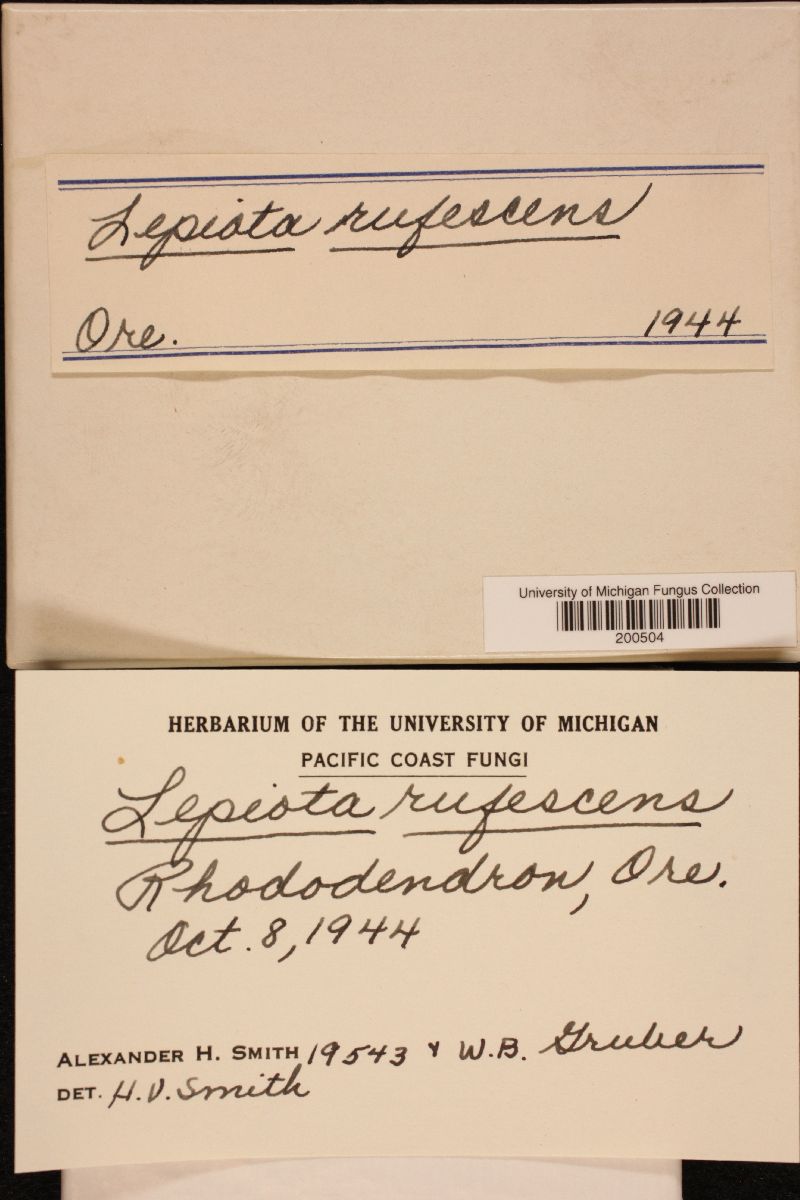 Lepiota rufescens
Ore. 1944
University of Michigan Fungus Collection
200504
HERBARIUM OF THE UNIVERSITY OF MICHIGAN
PACIFIC COAST FUNGI
Lepiota rufescens
Rhododendron, Ore.
Oct. 8, 1944
ALEXANDER H. SMITH 19543 & W.B. Gruber
DET. H.V. Smith